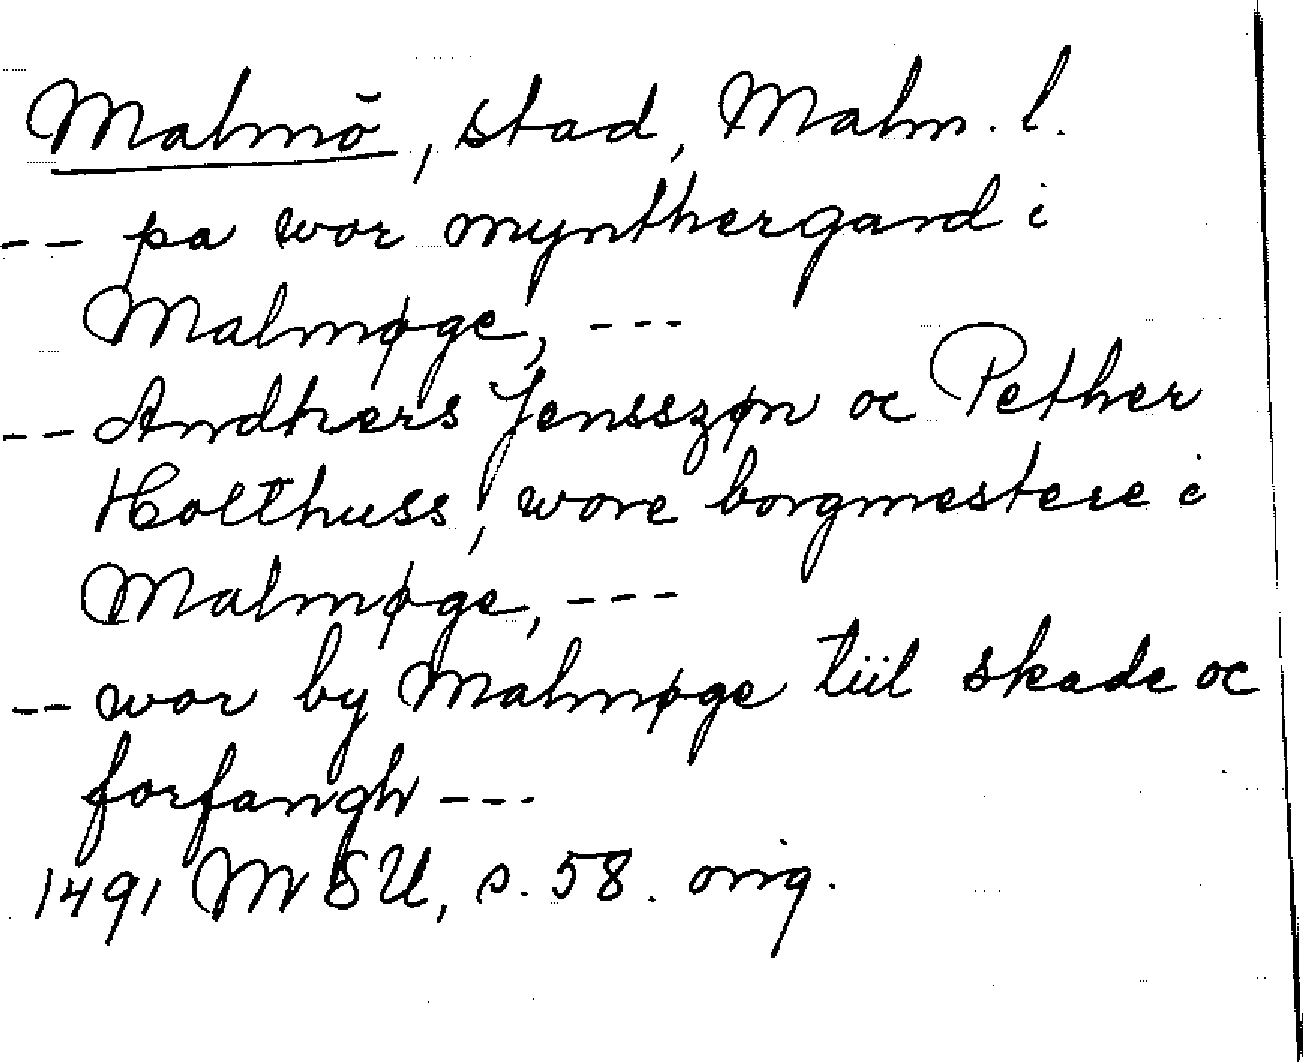 Malmö, stad, Malm. l.
-- pa wor mynthergard i
Malmøge, ---
-- Andhers Jensszøn oc Pether
Holthuss, wore borgmestere i
Malmøge, ---
-- wor by Malmøge tiil skade oc
forfangh ---
1491 MSU, s. 58. orig.